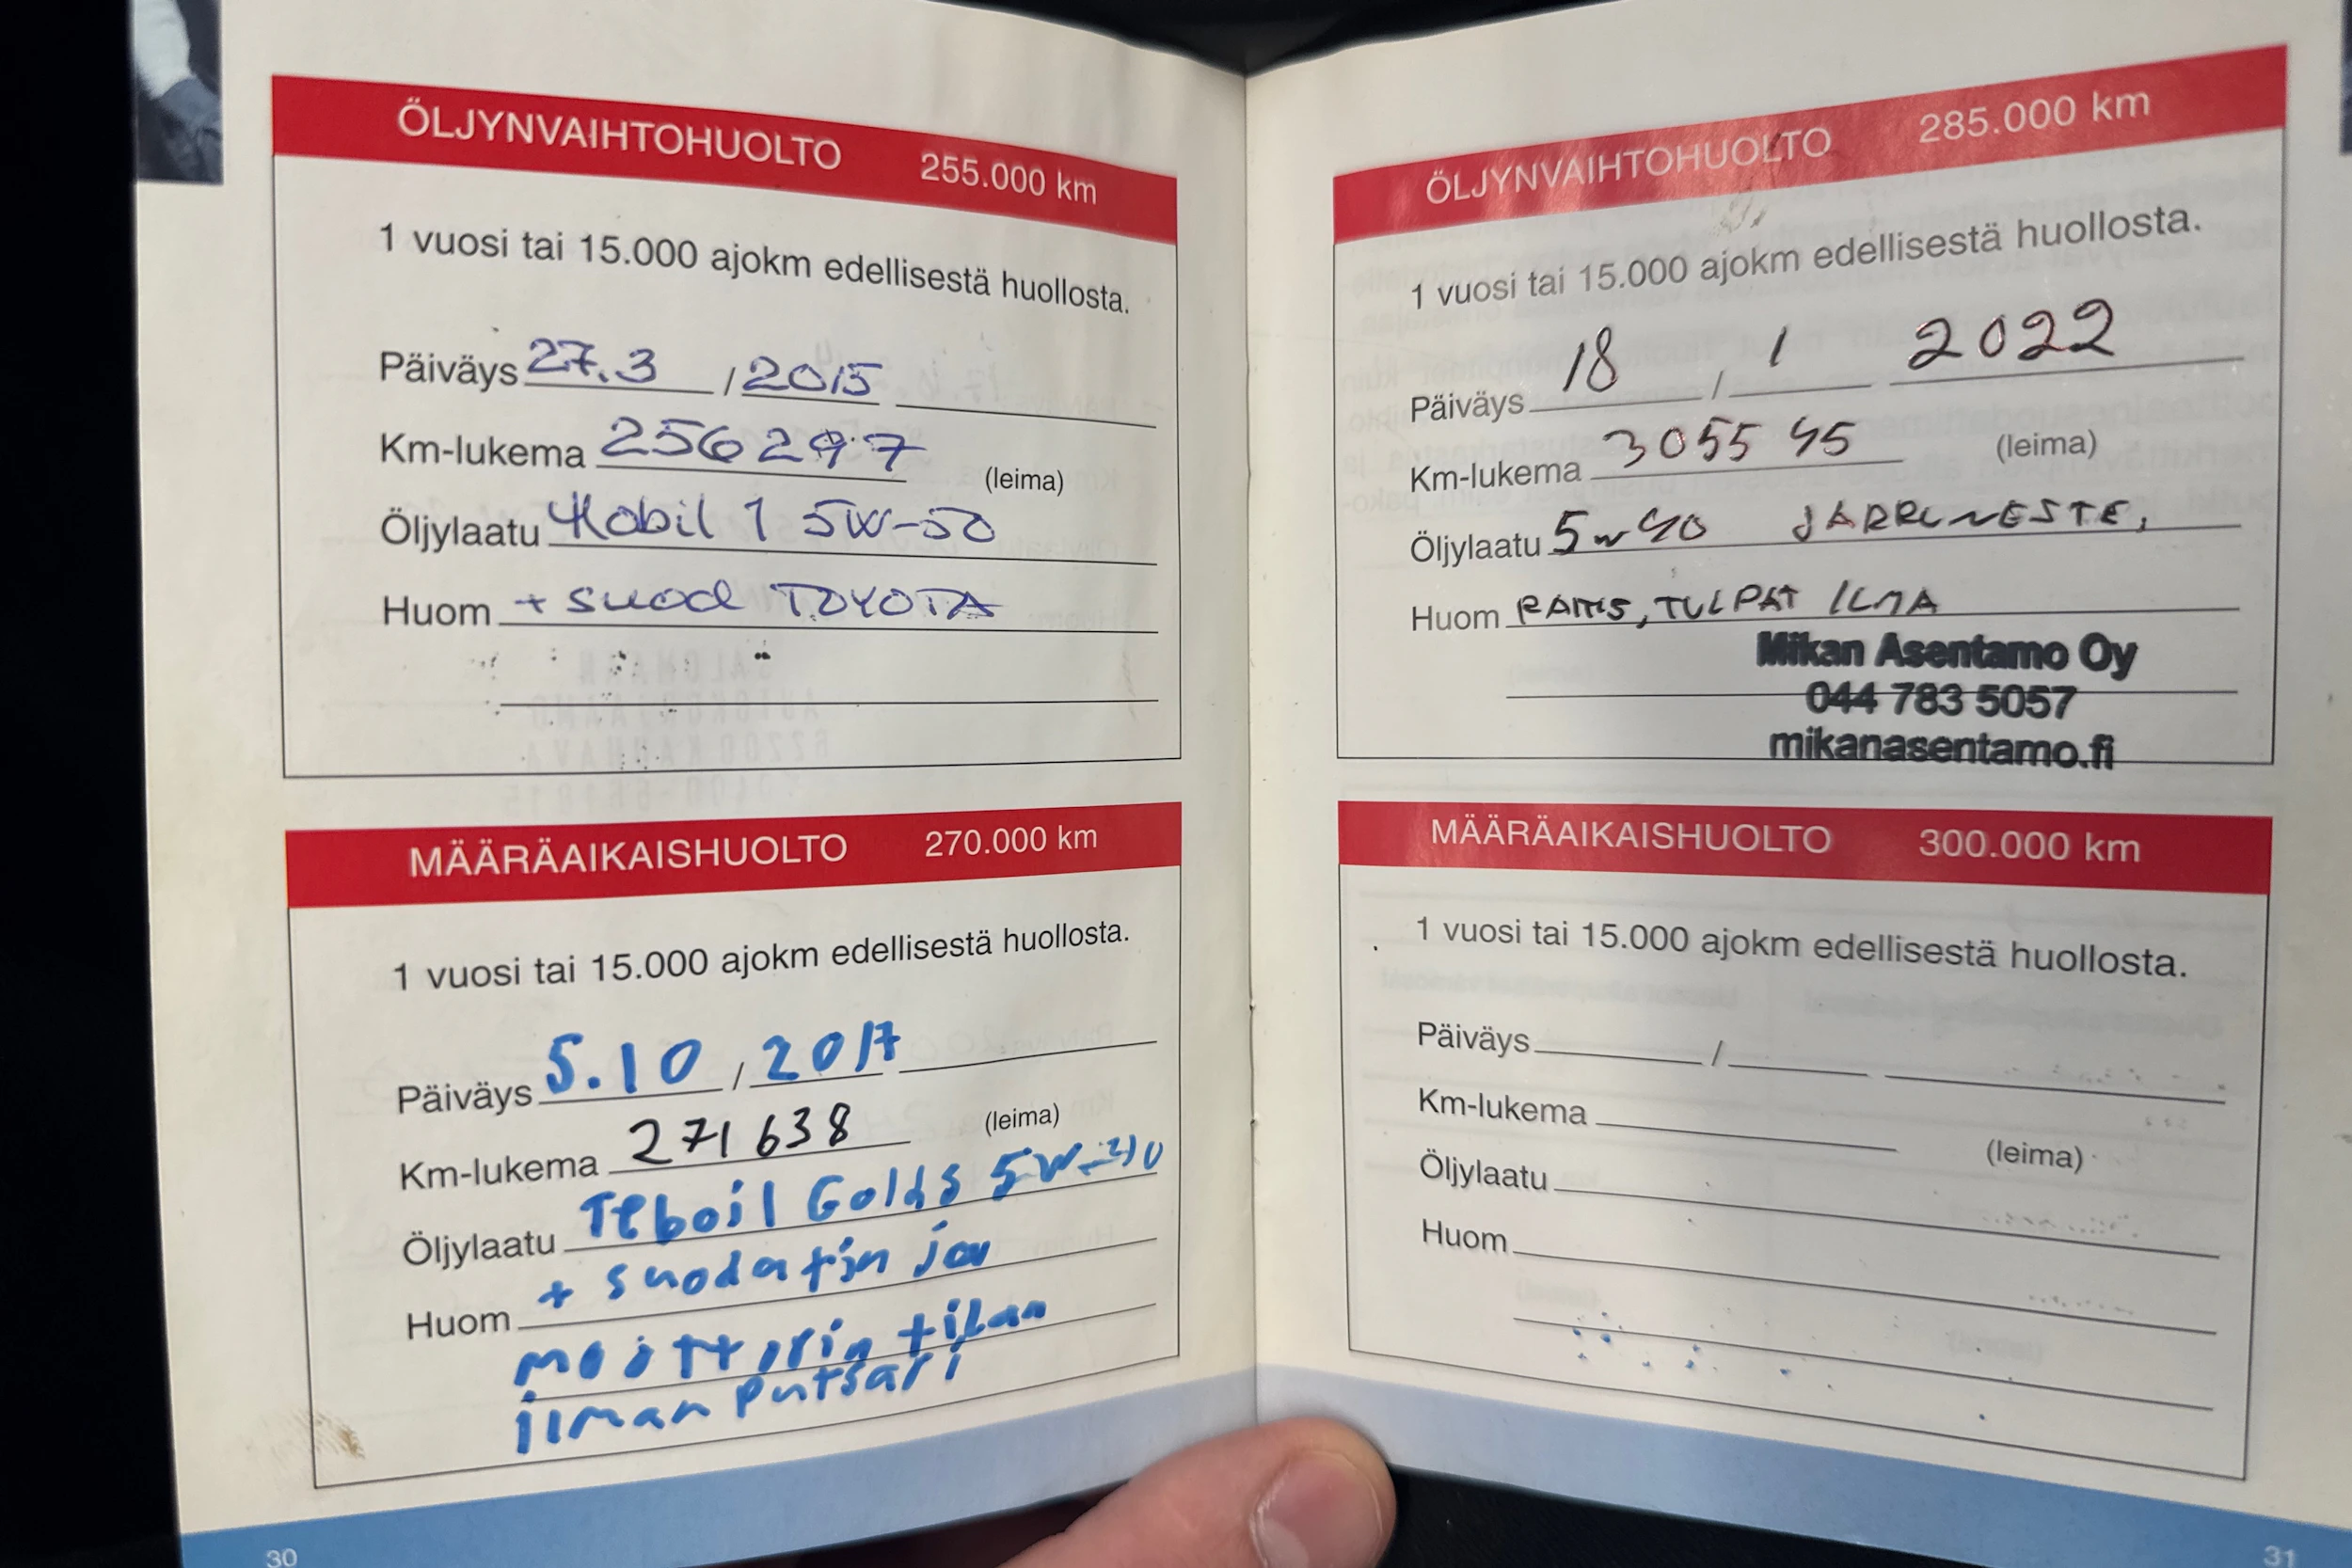 ÖLJYNVAIHTOHUOLTO 255.000 km
1 vuosi tai 15.000 ajokm edellisestä huollosta.
Päiväys 27.3 / 2015
Km-lukema 256297 (leima)
Öljylaatu Mobil 1 5W-50
Huom + suod TOYOTA
MÄÄRÄAIKAISHUOLTO 270.000 km
1 vuosi tai 15.000 ajokm edellisestä huollosta.
Päiväys 5.10 / 2017
Km-lukema 271638 (leima)
Öljylaatu Teboil Gold S 5W-40
Huom + suodatin ja
moottorin tilan
ilman putsari
30
ÖLJYNVAIHTOHUOLTO 285.000 km
1 vuosi tai 15.000 ajokm edellisestä huollosta.
Päiväys 18 / 1 2022
Km-lukema 305545 (leima)
Öljylaatu 5w40 JARRUNESTE,
Huom RAITIS, TULPAT ILMA
Mikan Asentamo Oy
044 783 5057
mikanasentamo.fi
MÄÄRÄAIKAISHUOLTO 300.000 km
1 vuosi tai 15.000 ajokm edellisestä huollosta.
Päiväys /
Km-lukema (leima)
Öljylaatu
Huom
31